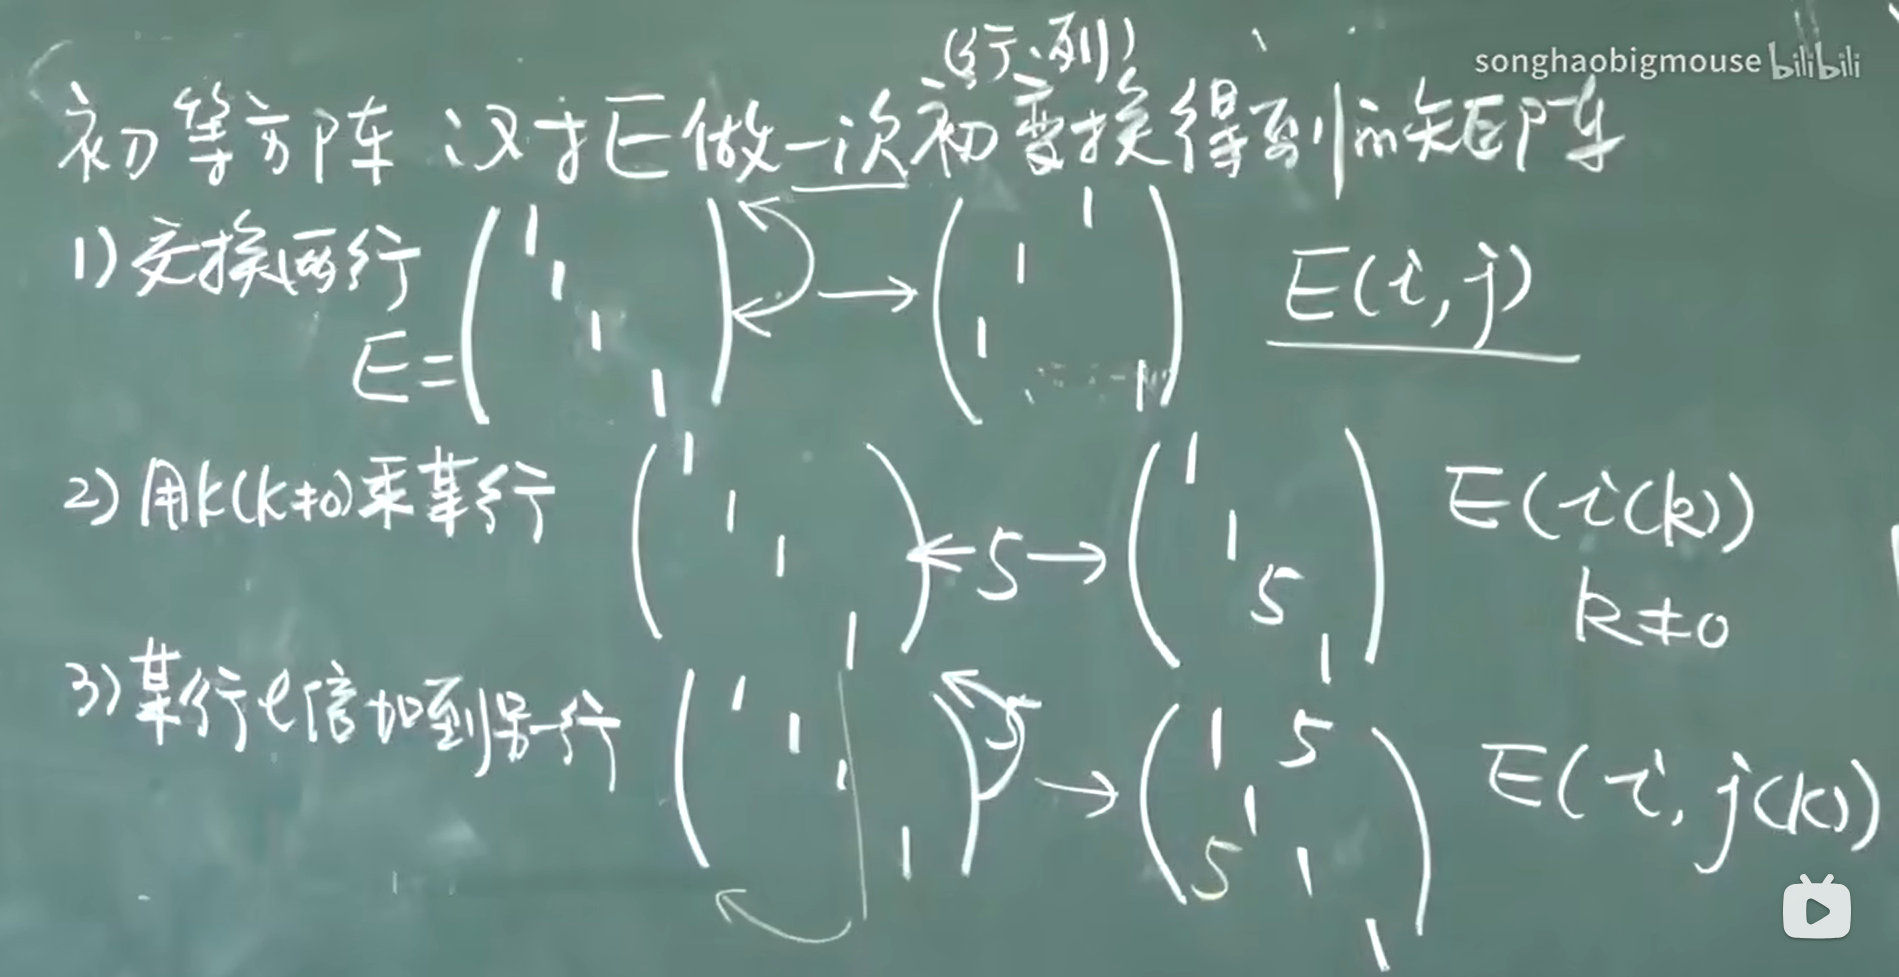 songhaobigmouse bilibili
(行、列)
初等方阵:对E做一次初变换得到的矩阵
1) 交换两行
E= ( 1 1 1 1 ) → ( 1 1 1 1 ) E(i,j)
2) 用k(k≠0)乘某行 ( 1 1 1 1 ) ←5→ ( 1 1 5 1 ) E(i(k))
k≠0
3) 某行l倍加到另一行 ( 1 1 1 1 ) 5 → ( 1 5 1 5 1 1 ) E(i,j(k))